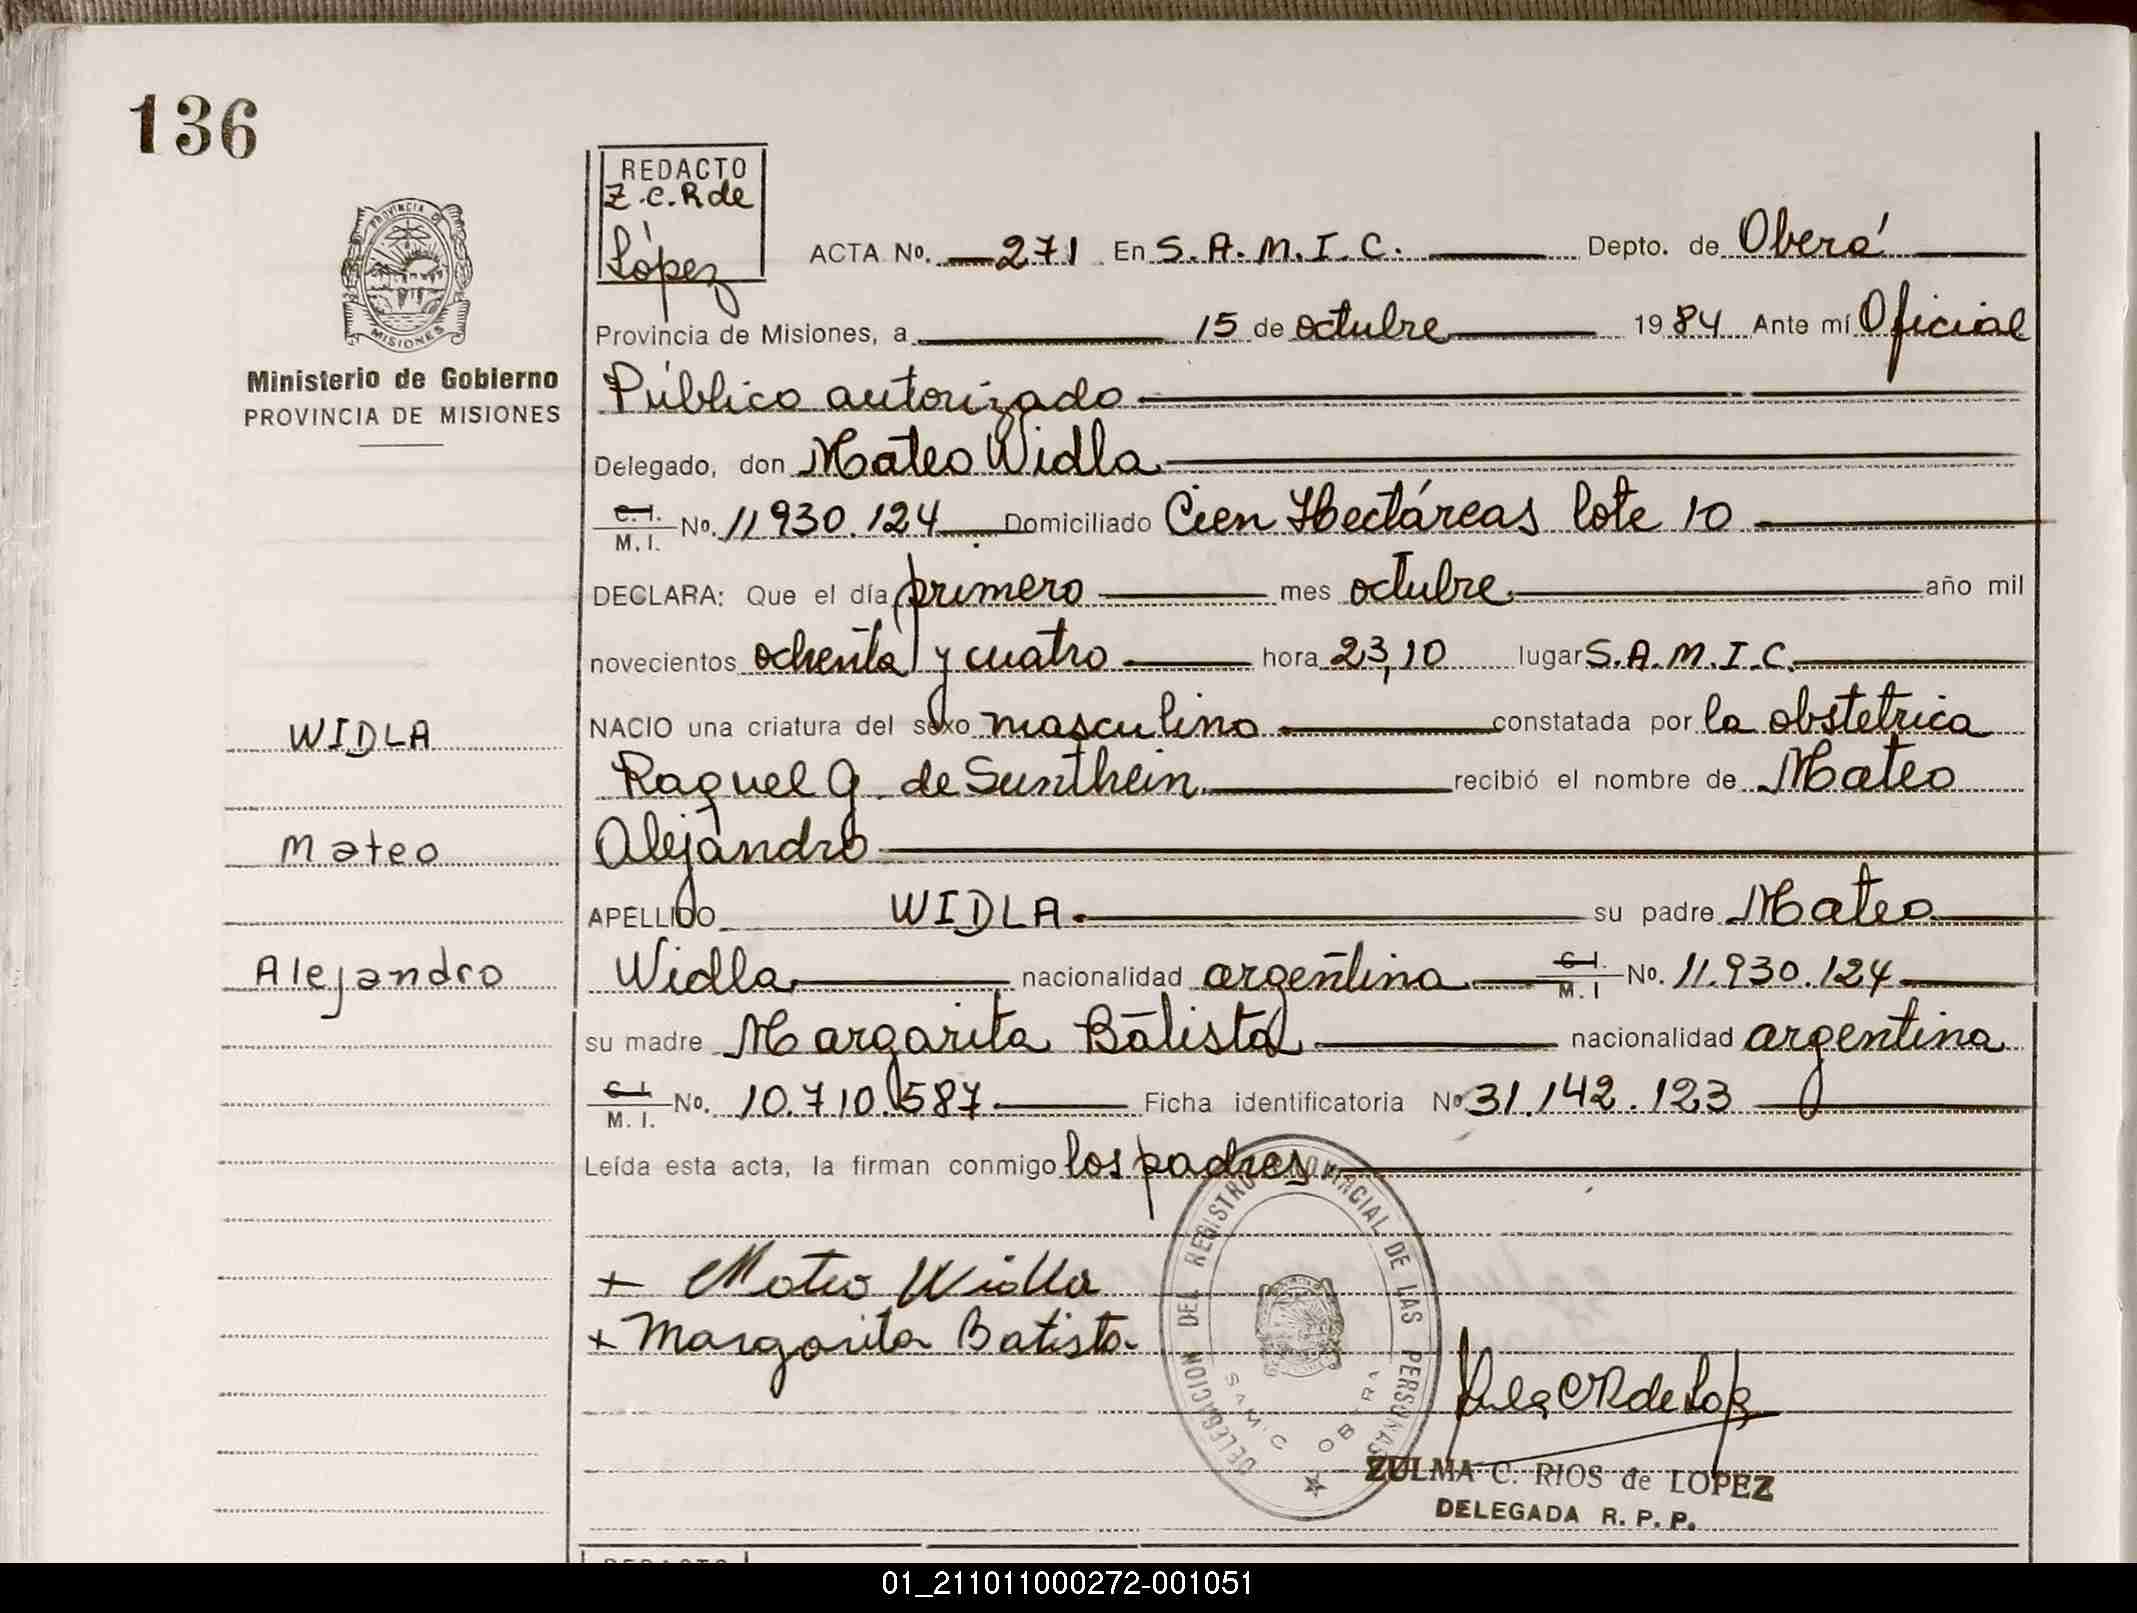 136
REDACTO
Z.C.R de
López
PROVINCIA DE
MISIONES
Ministerio de Gobierno
PROVINCIA DE MISIONES
ACTA No. 271 En S.A.M.I.C. Depto. de Oberá
Provincia de Misiones, a 15 de octubre 1984 Ante mí Oficial
Público autorizado
Delegado, don Mateo Widla
C.I. M.I. No. 11.930.124 Domiciliado Cien Hectáreas lote 10
DECLARA: Que el día primero mes octubre año mil
novecientos ochenta y cuatro hora 23,10 lugar S.A.M.I.C.
WIDLA
NACIO una criatura del sexo masculino constatada por la obstetrica
Raquel G. de Sunthein recibió el nombre de Mateo
Mateo
Alejandro
APELLIDO WIDLA su padre Mateo
Alejandro
Widla nacionalidad argentina C.I. M.I No. 11.930.124
su madre Margarita Batista nacionalidad argentina
C.I. M.I. No. 10.710.587 Ficha identificatoria No 31.142.123
Leída esta acta, la firman conmigo los padres
+ Mateo Widla
+ Margarita Batista
DELEGACION DEL REGISTRO PROVINCIAL DE LAS PERSONAS
SAMIC OBERA
ZULMA C. RIOS de LOPEZ
DELEGADA R. P. P.
REDACTO
01_211011000272-001051